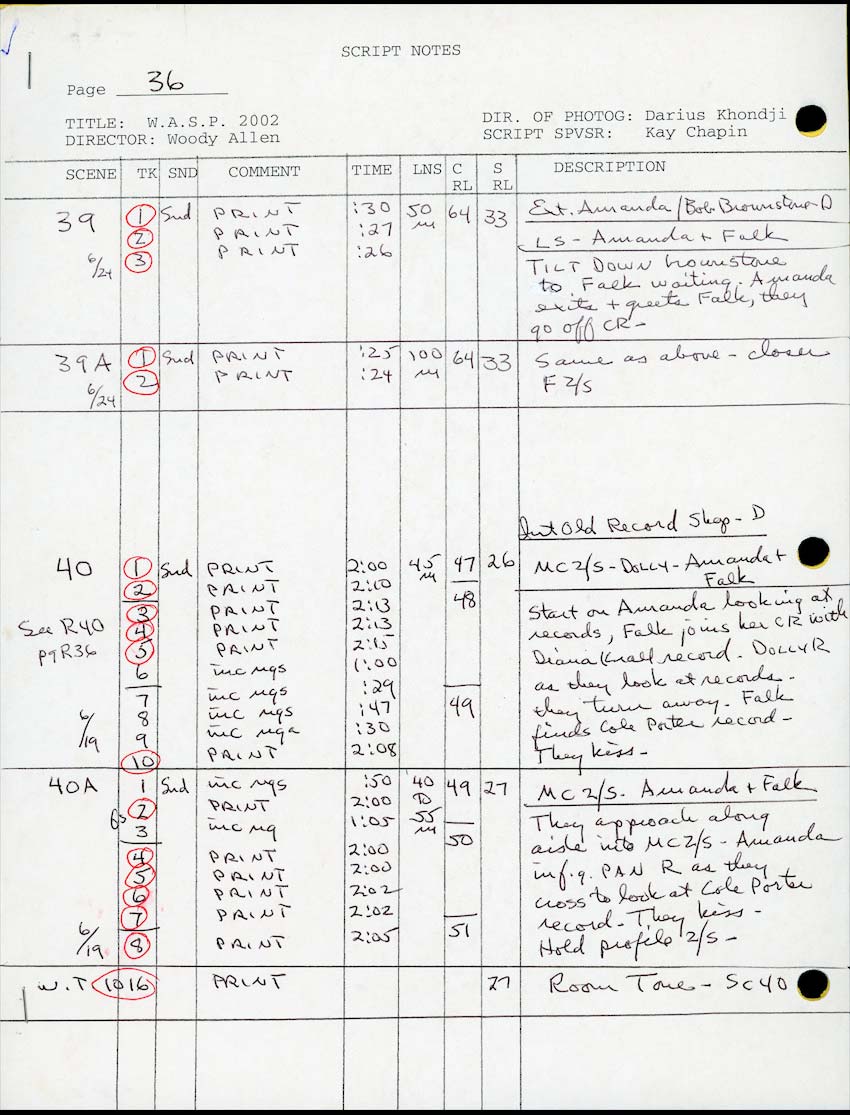 SCRIPT NOTES
Page 36
TITLE: W.A.S.P. 2002 DIR. OF PHOTOG: Darius Khondji
DIRECTOR: Woody Allen SCRIPT SPVSR: Kay Chapin
SCENE TK SND COMMENT TIME LNS C RL S RL DESCRIPTION
39 1 Snd PRINT :30 50 m 64 33 Ext. Amanda/Bob Brownstone-D
2 PRINT :27 LS - Amanda + Falk
6/24 3 PRINT :26 TILT DOWN brownstone
to Falk waiting. Amanda
exits + greets Falk, they
go off CR -
39A 1 Snd PRINT :25 100 m 64 33 Same as above - closer
6/24 2 PRINT :24 F 2/S
Int Old Record Shop - D
40 1 Snd PRINT 2:00 45 m 47 26 MC 2/S - DOLLY - Amanda +
2 PRINT 2:10 Falk
3 PRINT 2:13 48 Start on Amanda looking at
See R40 4 PRINT 2:13 records, Falk joins her CR with
pg R36 5 PRINT 2:15 Diana Krall record. DOLLY R
6 inc ngs 1:00 as they look at records -
7 inc ngs :29 they turn away. Falk
6/19 8 inc ngs :47 49 finds Cole Porter record -
9 inc ngs :30 They kiss -
10 PRINT 2:08
40A 1 Snd inc ngs :50 40 49 27 MC 2/S. Amanda + Falk
2 PRINT 2:00 They approach along
3 inc ng 1:05 55 m 50 aisle into MC 2/S - Amanda
4 PRINT 2:00 in f.g. PAN R as they
5 PRINT 2:00 cross to look at Cole Porter
6 PRINT 2:02 record - They kiss -
7 PRINT 2:02 Hold profile 2/S -
6/19 8 PRINT 2:05 51
W.T 1016 PRINT 27 Room Tone - Sc 40